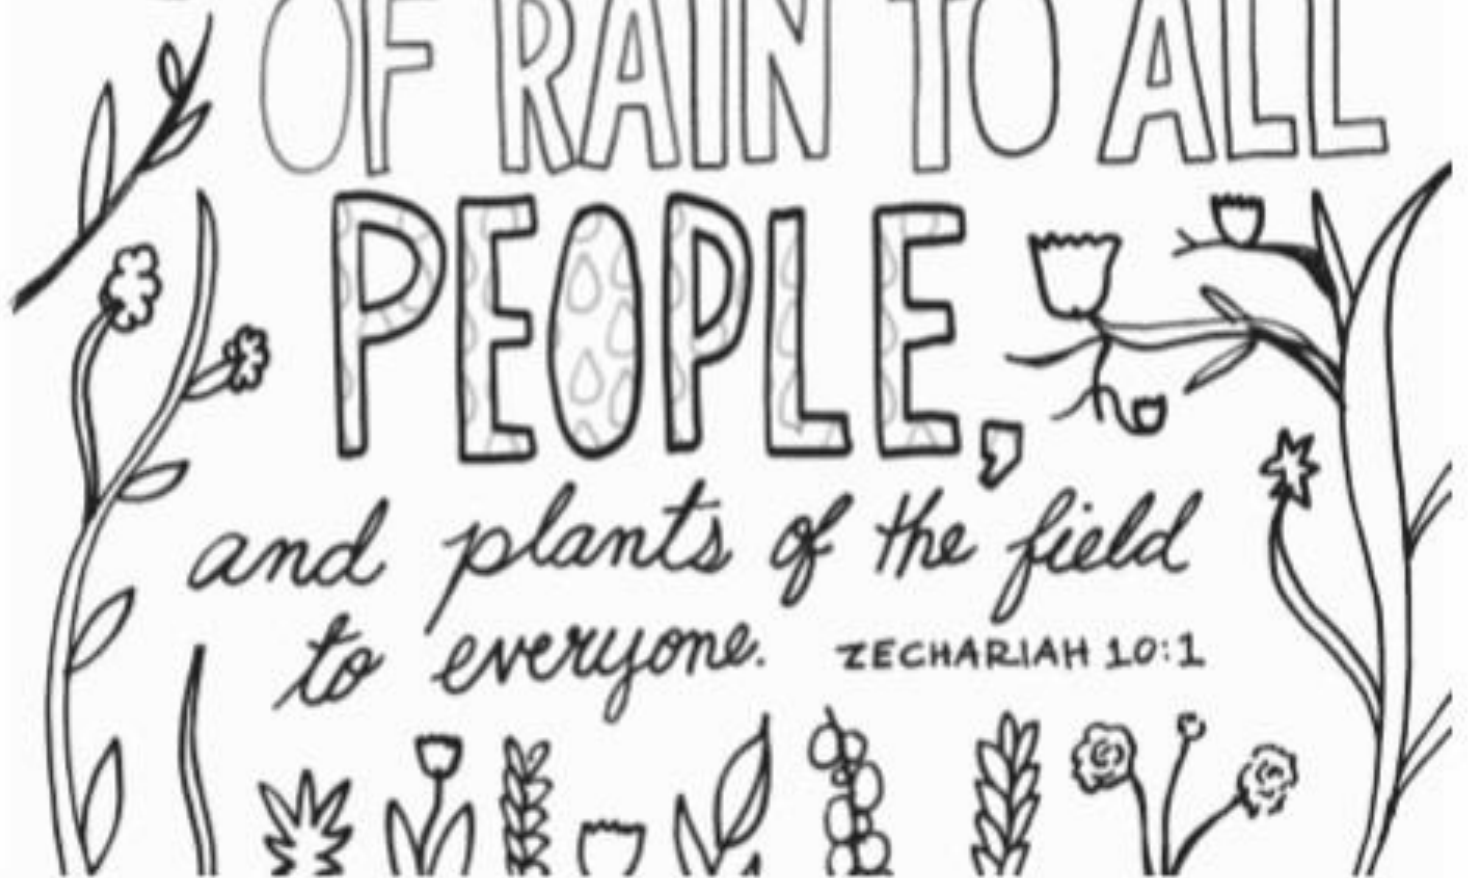 OF RAIN TO ALL
PEOPLE,
and plants of the field
to everyone. ZECHARIAH 10:1